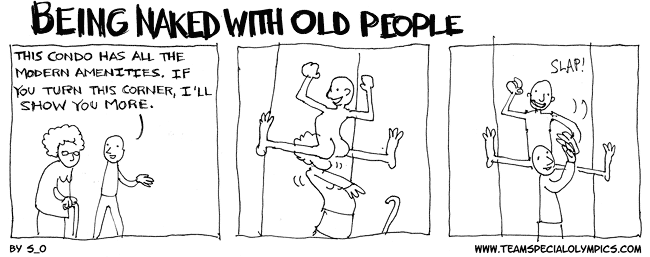 BEING NAKED WITH OLD PEOPLE
THIS CONDO HAS ALL THE
MODERN AMENITIES. IF
YOU TURN THIS CORNER, I'LL
SHOW YOU MORE.
SLAP!
BY S_O
WWW.TEAMSPECIALOLYMPICS.COM